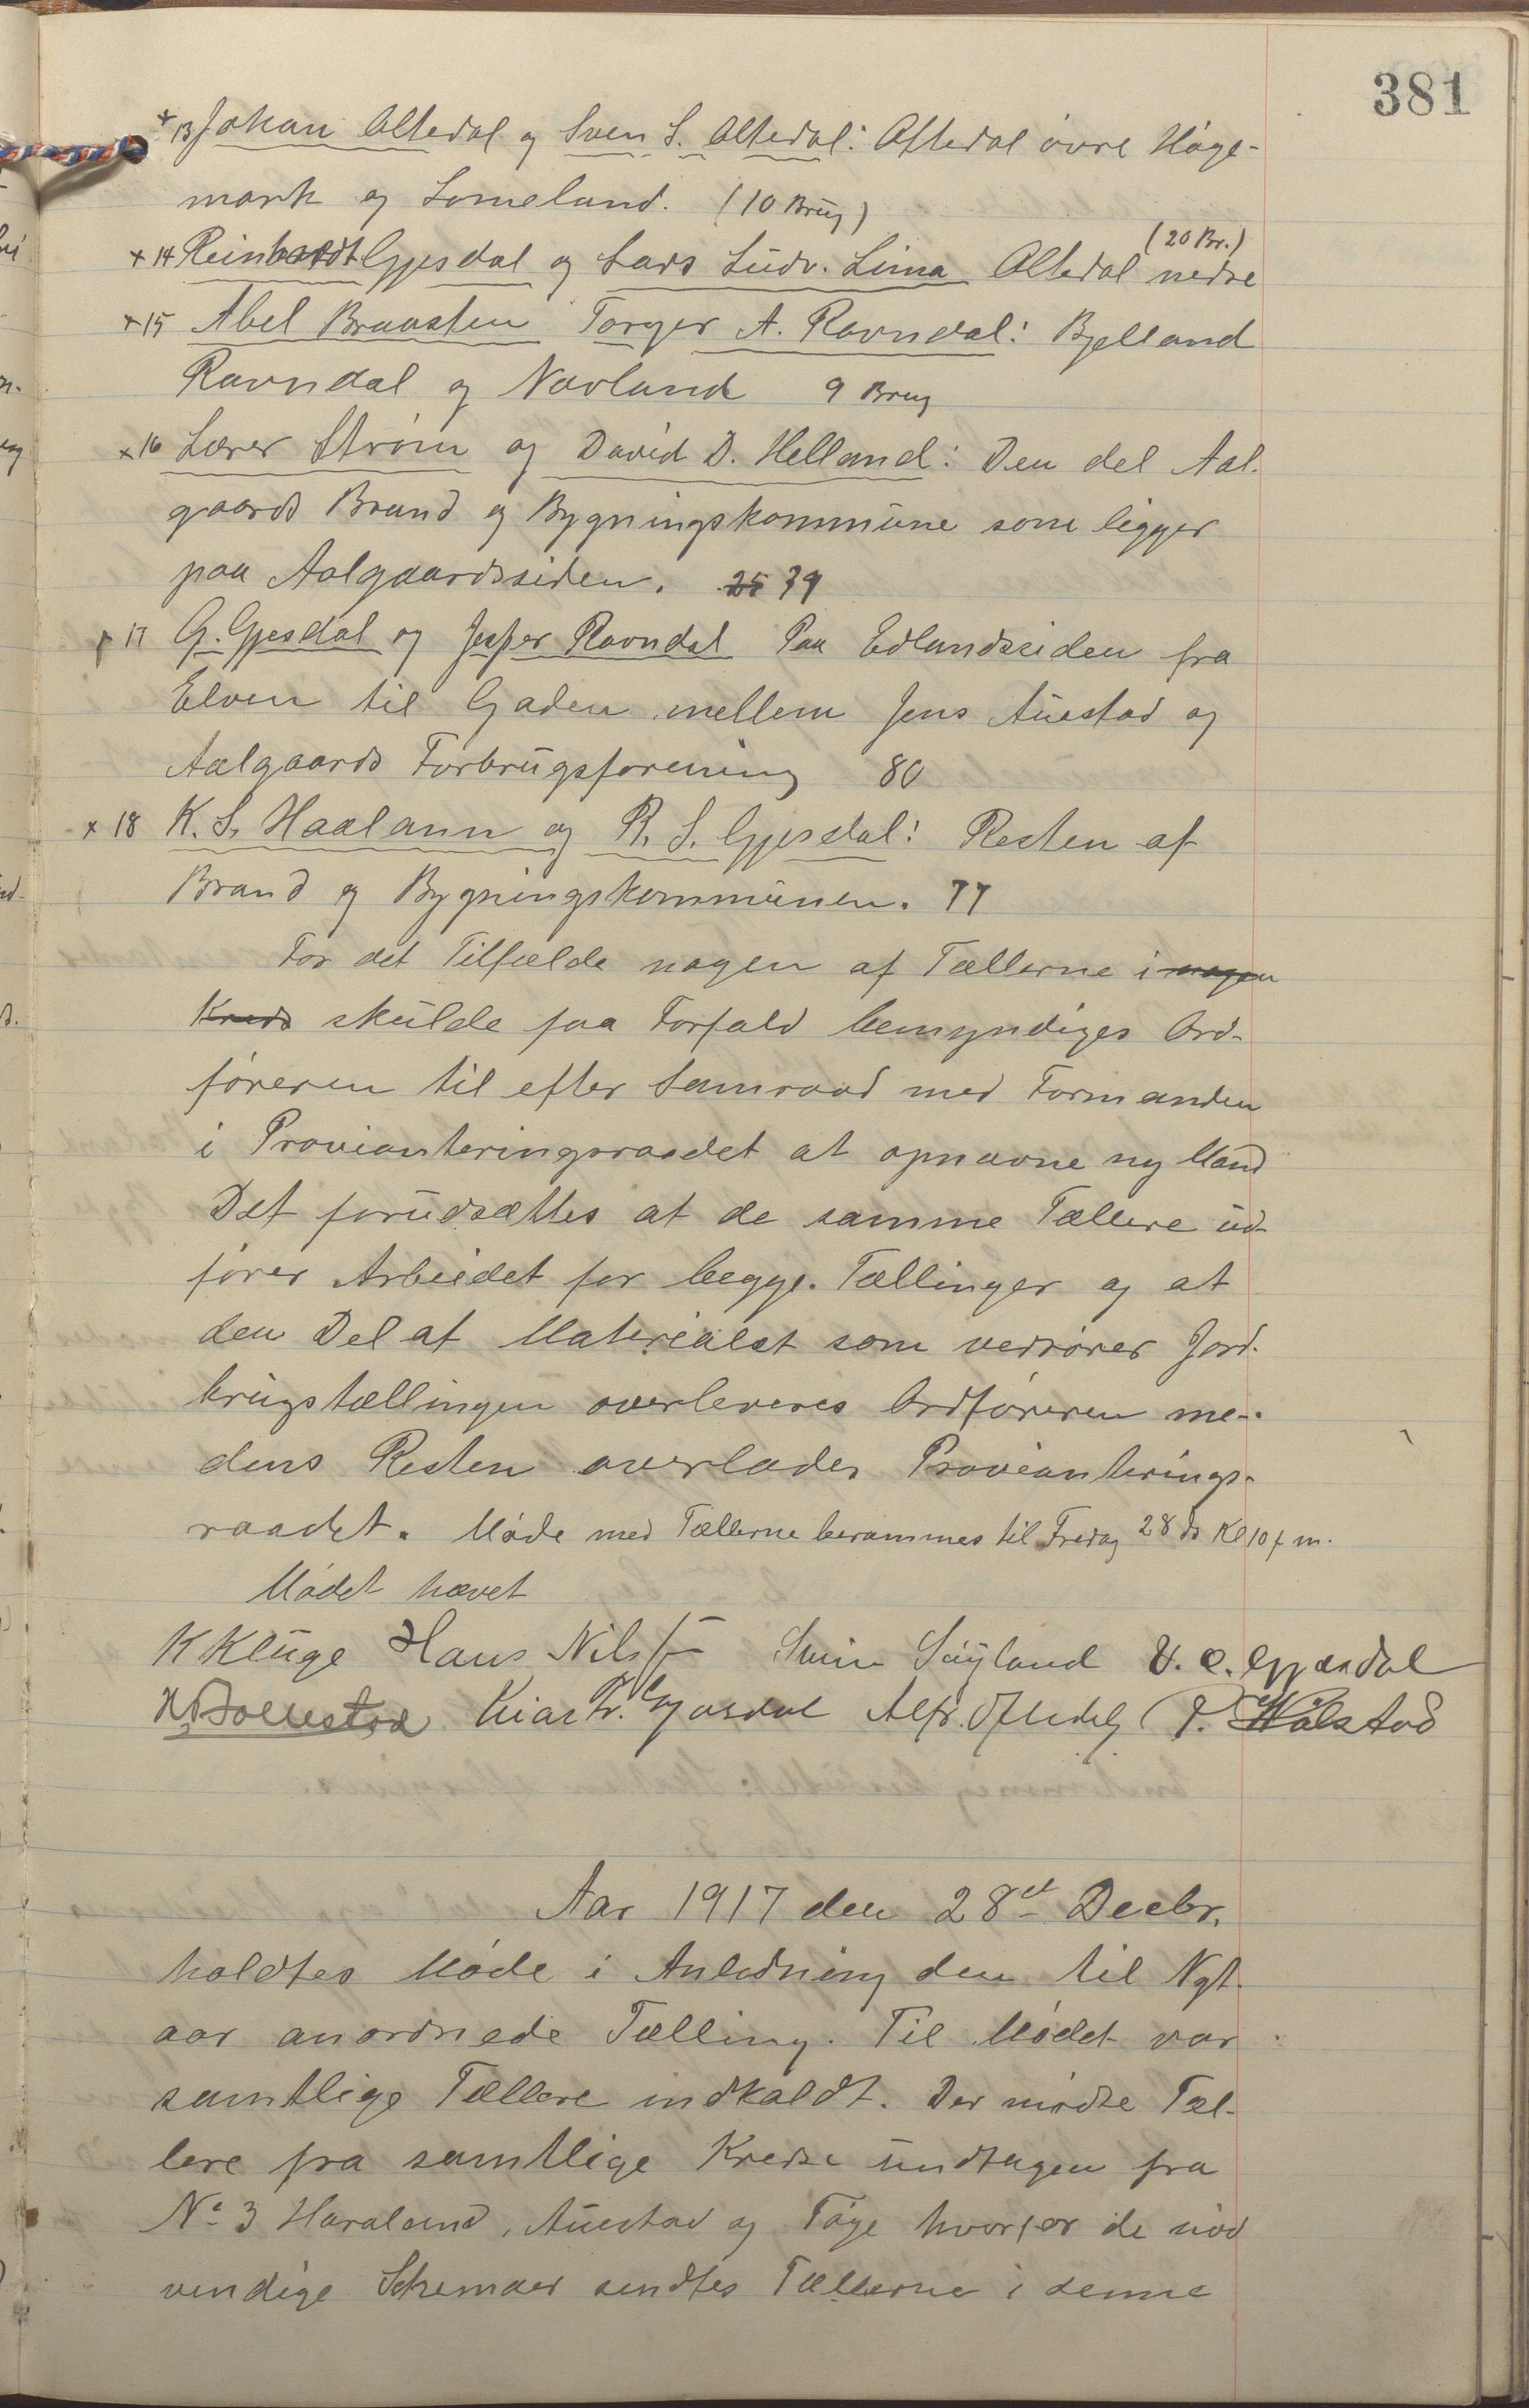 381
x 13 Johan Oltedal og Sven S. Oltedal: Oltedal øvre Høge-
mark og Lomeland. (10 Brug)
(20 Br.)
x 14 Reinhardt Gjesdal og Lars Ludv. Lima Oltedal nedre
x 15 Abel Braasten Torger A. Ravndal: Bjelland
Ravndal og Navland 9 Brug
x 16 Lærer Strøm og David D. Helland: Den del Aal-
gaards Brand og Bygningskommune som ligger
paa Aalgaardssiden. 25 39
x 17 G. Gjesdal og Jesper Ravndal Paa Edlandssiden fra
Elven til Gaden mellem Jens Auestad og
Aalgaards Forbrugsforening 80
x 18 K. S. Haaland og R. S. Gjesdal: Resten af
Brand og Bygningskommunen. 77
For det Tilfælde nogen af Tællerne i nogen
Kreds skulde faa Forfald bemyndiges Ord-
føreren til efter Samraad med Formanden
i Provianteringsraadet at opnævne ny Mand
Det forudsættes at de samme Tællere ud-
fører Arbeidet for begge Tællinger og at
den Del af Materialet som vedrører Jord-
brugstællingen overleveres Ordføreren me-
dens Resten overlades Provianterings-
raadet. Møde med Tællerne berammes til Fredag 28 ds Kl 10 f m.
Mødet hævet
K Kluge Hans Nilsen Svein Søyland V. C. Gjesdal
Kiar Tr. Gjesdal Alfr. Oftedal T. Ølstad
Aar 1917 den 28de Decbr.
holdtes Møde i Anledning den til Nyt-
aar anordnede Tælling. Til Mødet var
samtlige Tællere indkaldt. Der mødte Tæl-
lere fra samtlige Kredse undtagen fra
No 3 Haraland, Auestad og Tøge hvorfor de nød
vendige Schemaer sendtes Tællerne i denne